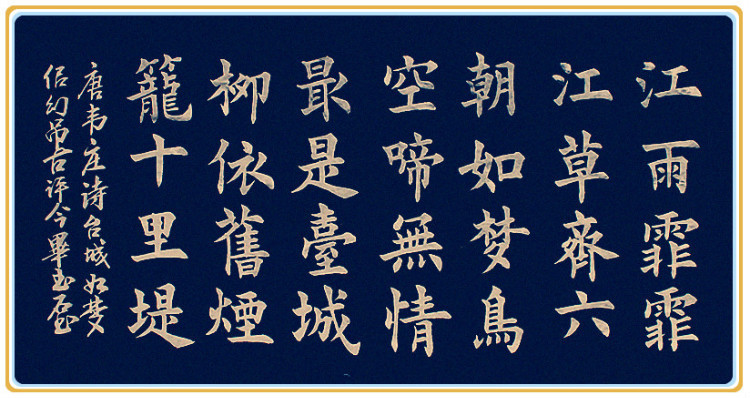 江雨霏霏
江草齊六
朝如梦鳥
空啼無情
最是臺城
柳依舊煙
籠十里堤
唐韦庄诗台城如梦
侣幻吊古评今畢玉